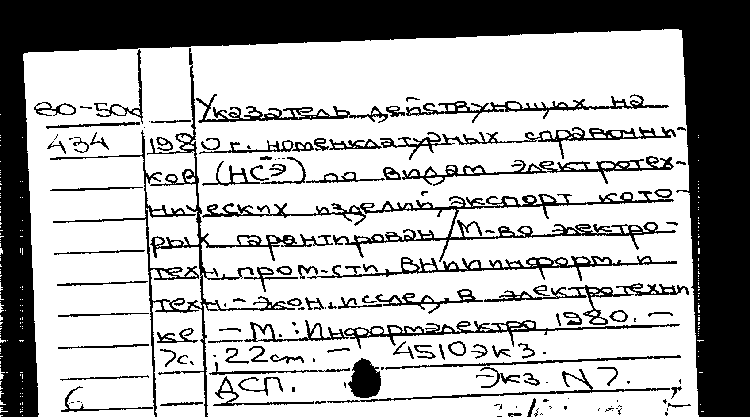 80-50к Указатель действующих на
434 1980 г. номенклатурных справочни-
ков (НСЭ) по видам электротех-
нических изделий, экспорт кото-
рых гарантирован / М-во электро-
техн. пром-сти, ВНИИ информ. и
техн.-экон. исслед. в электротехни-
ке. - М.: Информэлектро, 1980. -
7с.; 22см. - 4510 экз.
ДСП. Экз. N 7.